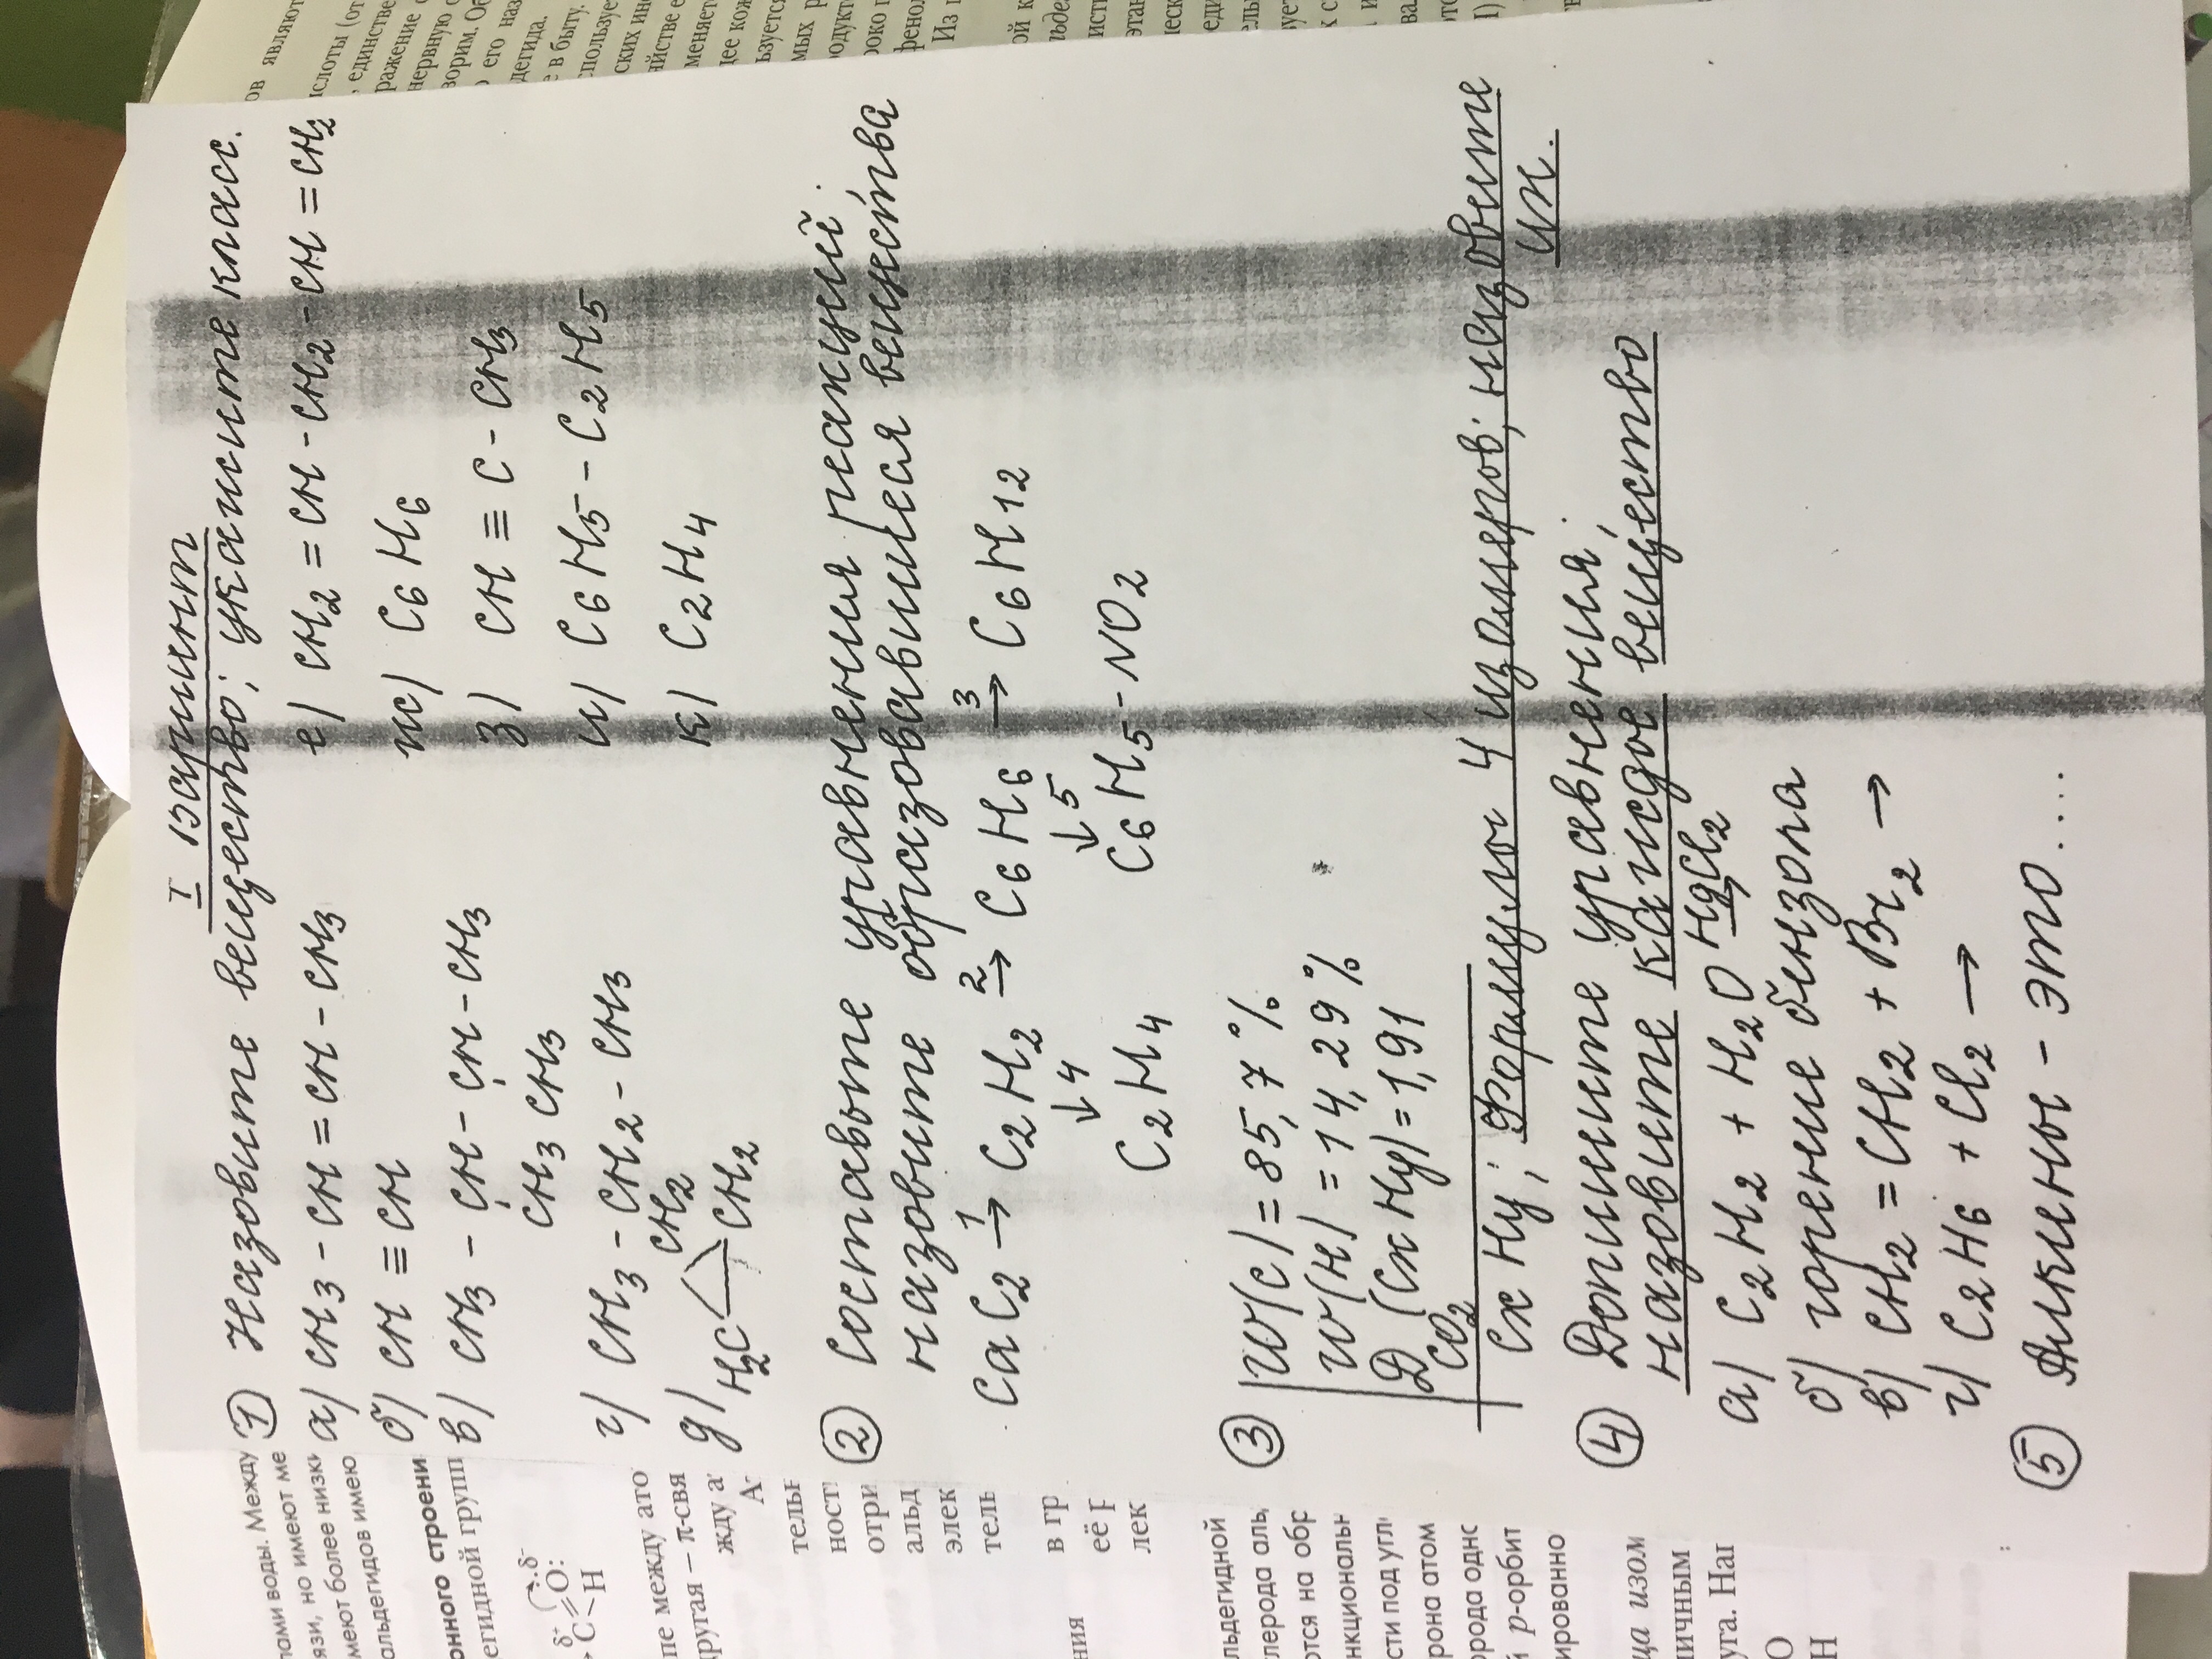 I вариант
① Назовите вещество; укажите класс.
а) CH3 - CH = CH - CH3
е) CH2 = CH - CH2 - CH = CH2
б) CH ≡ CH
ж) C6H6
в) CH3 - CH - CH - CH3
CH3 CH3
з) CH ≡ C - CH3
и) C6H5 - C2H5
г) CH3 - CH2 - CH3
к) C2H4
д) H2C CH2 CH2
② Составьте уравнения реакций.
назовите образовавшиеся вещества
CaC2 1→ C2H2 2→ C6H6 3→ C6H12
↓4 ↓5
C2H4 C6H5 - NO2
③ W(C) = 85,7 %
W(H) = 14,29 %
Д CO2 (CxHy) = 1,91
CxHy; Формулы 4 изомеров; назовите
их.
④ Допишите уравнения,
назовите каждое вещество
а) C2H2 + H2O HgCl2→
б) горение бензола
в) CH2 = CH2 + Br2 →
г) C2H6 + Cl2 →
⑤ Алкины - это....
лами воды. Между
язи, но имеют ме
меют более низк
альдегидов имею
онного строени
егидной групп
δ+ δ-
C O:
H
пе между ато
другая – π-свя
жду а
А
тель
ност
отри
альд
элек
тель
в гр
её р
лек
ния
льдегидной
глерода аль
ются на обр
нкциональн
сти под угл
рона атом
орода одно
й p-орбит
ированно
ца изом
личным
уга. Наг
O
H
ов являют
ислоты (от
, единстве
ражение
нервную
ворим. Об
его наз
дегида.
е в быту.
спользуе
ских ин
йстве
меняет
цее кож
ьзуется
мых р
одукт
роко
фенол
Из
ой к